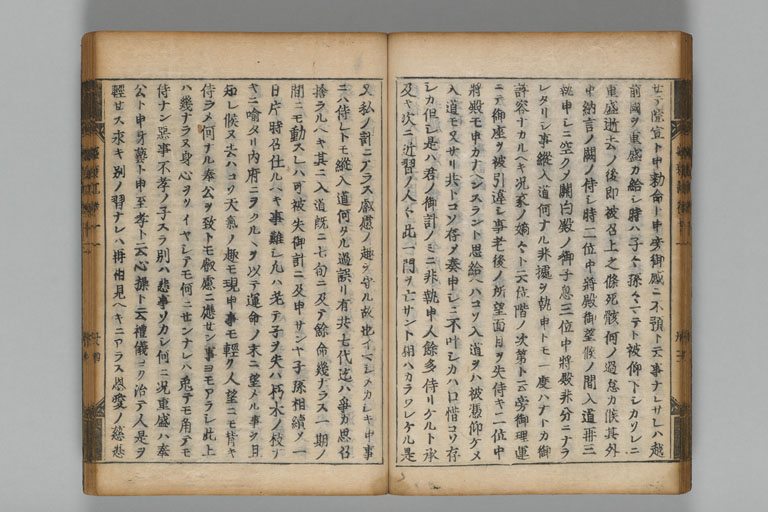 世ニテ院宣ト申勅命ト申旁御感ニ不預ト云事ナレサレハ越
前國ヲ重盛カ給シ時ハ子々孫々マテト被仰下シカソレニ
重盛逝去ノ後即被召上之條死骸何ノ過怠カ候其外
中納言ノ闕ノ侍シ時二位中將殿御望候ノ間入道再三
執申シニ空ク關白殿ノ御子息三位中將殿非分ニナラ
レタリシ事縱入道何ナル非據ヲ執申トモ一度ハナトカ御
許容ナカルヘキ况家ノ嫡々ト云位階ノ次第ト云旁御理運
ニテ御座ヲ被引違シ事老後ノ所望面目ヲ失侍キ二位中
將殿モ申カナヘンスラント思給ヘハコソ入道ヲハ被憑仰ケメ
入道モ又サリ共トコソ存メ奏申シニ不叶シカハ口惜コソ存
シカ但シ是ハ君ノ御計ノミニ非執申人餘多侍リケルト承
及ヘ次ニ近習ノ人々此一門ヲ亡サント相ハカラワレケル是
又私ノ計ニアラス叡慮ノ趣ヲ守ル故也イマシメカシキ申事
ニハ侍レトモ縱入道何タル過誤リ有共七代迄ハ爭カ思召
捨ラルヘキ其ニ入道既ニ七旬ニ及テ餘命幾ナラス一期ノ
間ニモ動スレハ可被失御計ニ及申サンヤ子孫相續メ一
日片時召仕ルヘキ事難シ凡ハ老テ子ヲ失ハ朽木ノ枝ナ
キニ喩タリ内府ニヲクルヽヲ以テ運命ノ末ニ望メル事ヲ且
知レ候ヌ去ハコソ天氣ノ趣モ現申事モ輕ク人望ニモ背キ
侍ラメ何ナル奉公ヲ致トモ叡慮ニ應サン事ヨモアラシ此上
ハ幾ナラヌ身心ヲツイヤシテモ何ニセンナレハ兎テモ角テモ
侍ナン惡事不孝ノ子スラ別ハ悲事ソカシ何ニ况重盛ハ奉
公ト申才藝ト申至孝ト云心操ト云禮儀ヨク治テ人是ヲ
輕セス永キ別ノ習ナレハ再相見ヘキニアラス恩愛ノ慈悲